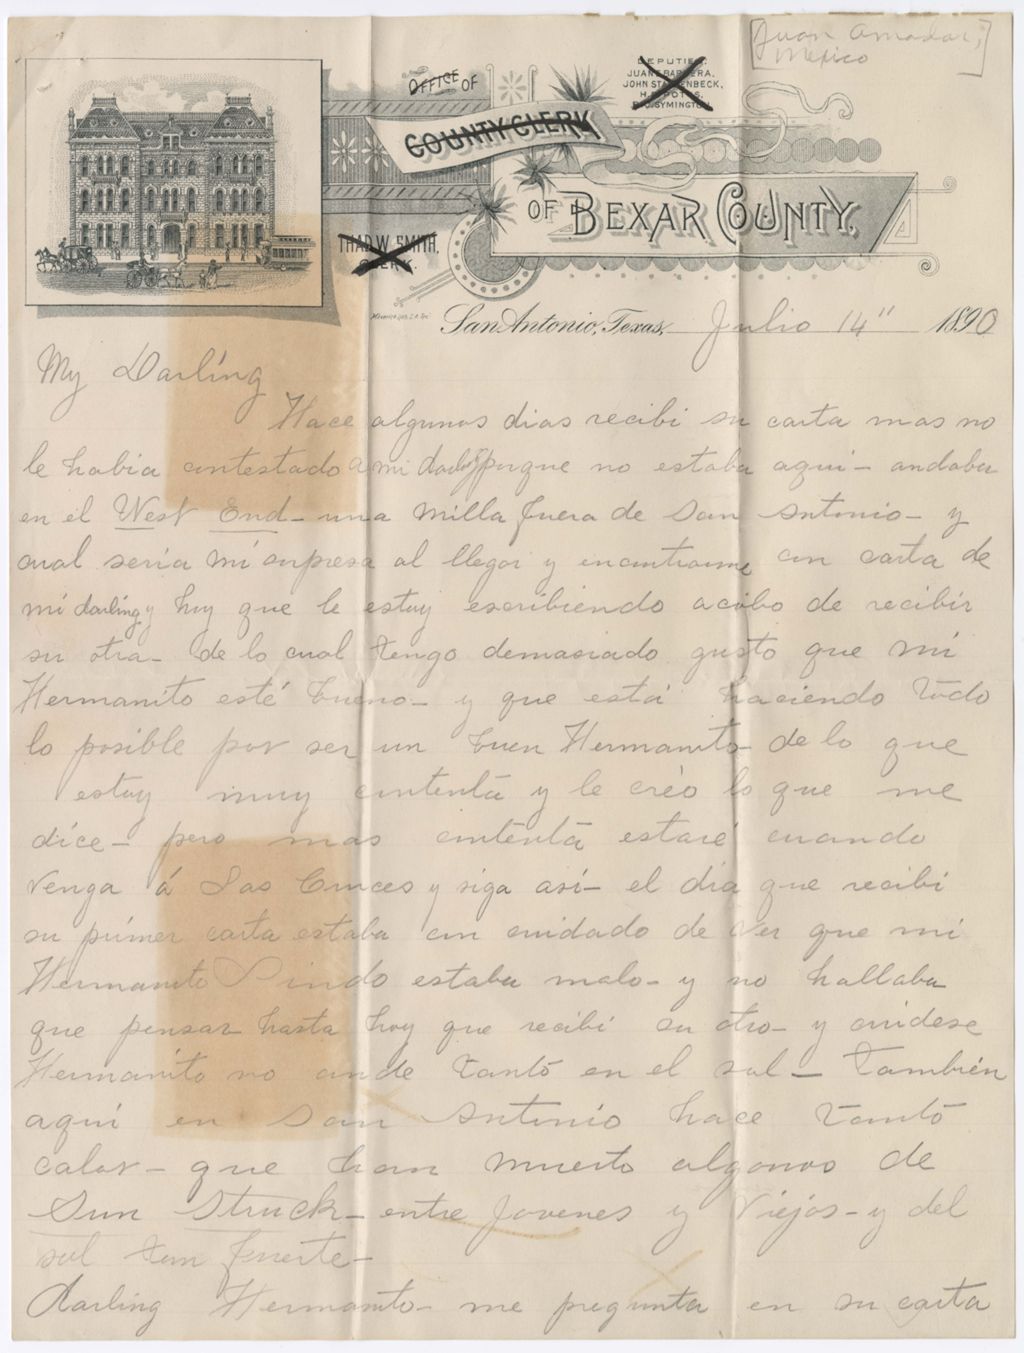 [Juan Amador,
Mexico]
OFFICE OF
COUNTY CLERK
OF BEXAR COUNTY.
DEPUTIES:
JUAN E. BARRERA,
JOHN STAPPENBECK,
H. E. POTTS,
SYMINGTON
THAD. W. SMITH,
CLERK.
San Antonio, Texas, Julio 14" 1890
My Darling
Hace algunos dias recibi su carta mas no
le habia contestado a mi darling porque no estaba aqui - andaba
en el West End - una milla fuera de San Antonio - y
cual seria mi surpresa al llegar y encontrarme con carta de
mi darling y hoy que le estoy escribiendo acabo de recibir
su otra - de lo cual tengo demasiado gusto que mi
Hermanito esté bueno - y que está haciendo todo
lo posible por ser un buen Hermanito - de lo que
estoy muy contenta y le créo lo que me
dice - pero mas contenta estaré cuando
venga á Las Cruces y siga asi - el dia que recibi
su primer carta estaba con cuidado de ver que mi
Hermanito Lindo estaba malo - y no hallaba
que pensar hasta hoy que recibi su otro - y cuidese
Hermanito no ande tanto en el sol - Tambien
aqui en San Antonio hace tanto
calor - que han muerto algonos de
Sun Struck - entre Jovenes y Viejos - y del
sol tan fuerte -
Darling Hermanito - me pregunta en su carta